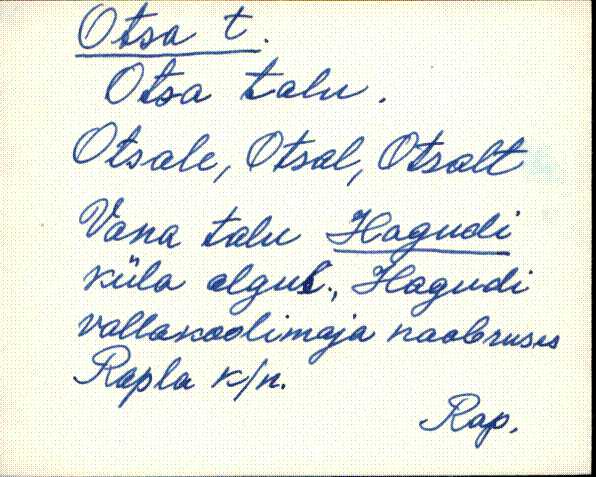 Otsa t.
Otsa talu.
Otsale, Otsal, Otsalt
Vana talu Hagudi
küla algul., Hagudi
vallakoolimaja naabruses
Rapla k/n.
Rap.